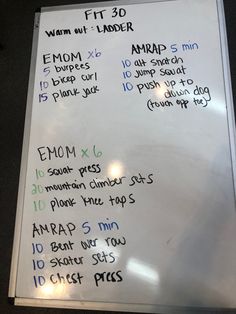 FIT 30
Warm out: LADDER
EMOM x6
5 burpees
10 bicep curl
15 plank jack
AMRAP 5 min
10 alt snatch
10 jump squat
10 push up to
down dog
(touch opp toe)
EMOM x 6
10 squat press
20 mountain climber sets
10 plank knee taps
AMRAP 5 min
10 Bent over row
10 skater sets
10 chest press